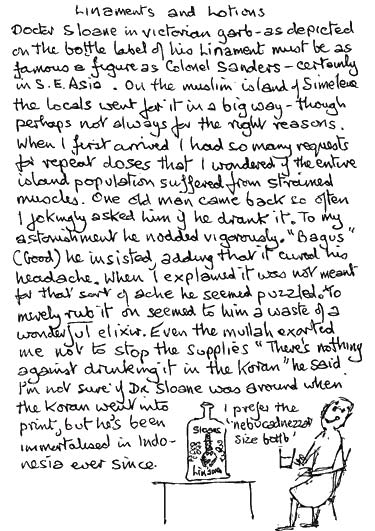 Linaments and Lotions
Docter Sloane in victorian garb-as depicted
on the bottle label of his Linament must be as
famous a figure as Colonel Sanders - certainly
in S.E. Asia. On the muslim island of Simelere
the locals went for it in a big way - though
perhaps not always for the right reasons.
When I first arrived I had so many requests
for repeat doses that I wondered if the entire
island population suffered from strained
muscles. One old man came back so often
I jokingly asked him if he drank it. To my
astonishment he nodded vigorously. "Bagus"
(Good) he insisted, adding that it cured his
headache. When I explained it was not meant
for that sort of ache he seemed puzzled. To
merely rub it on seemed to him a waste of a
wonderful elixir. Even the mullah exorted
me not to stop the supplies "There's nothing
against drinking it in the Koran" he said.
I'm not sure if Dr. Sloane was around when
the Koran went into
print, but he's been
immortalised in Indo-
nesia ever since.
Sloans
Linament
I prefer the
'nebucadnezzar
size bottle'